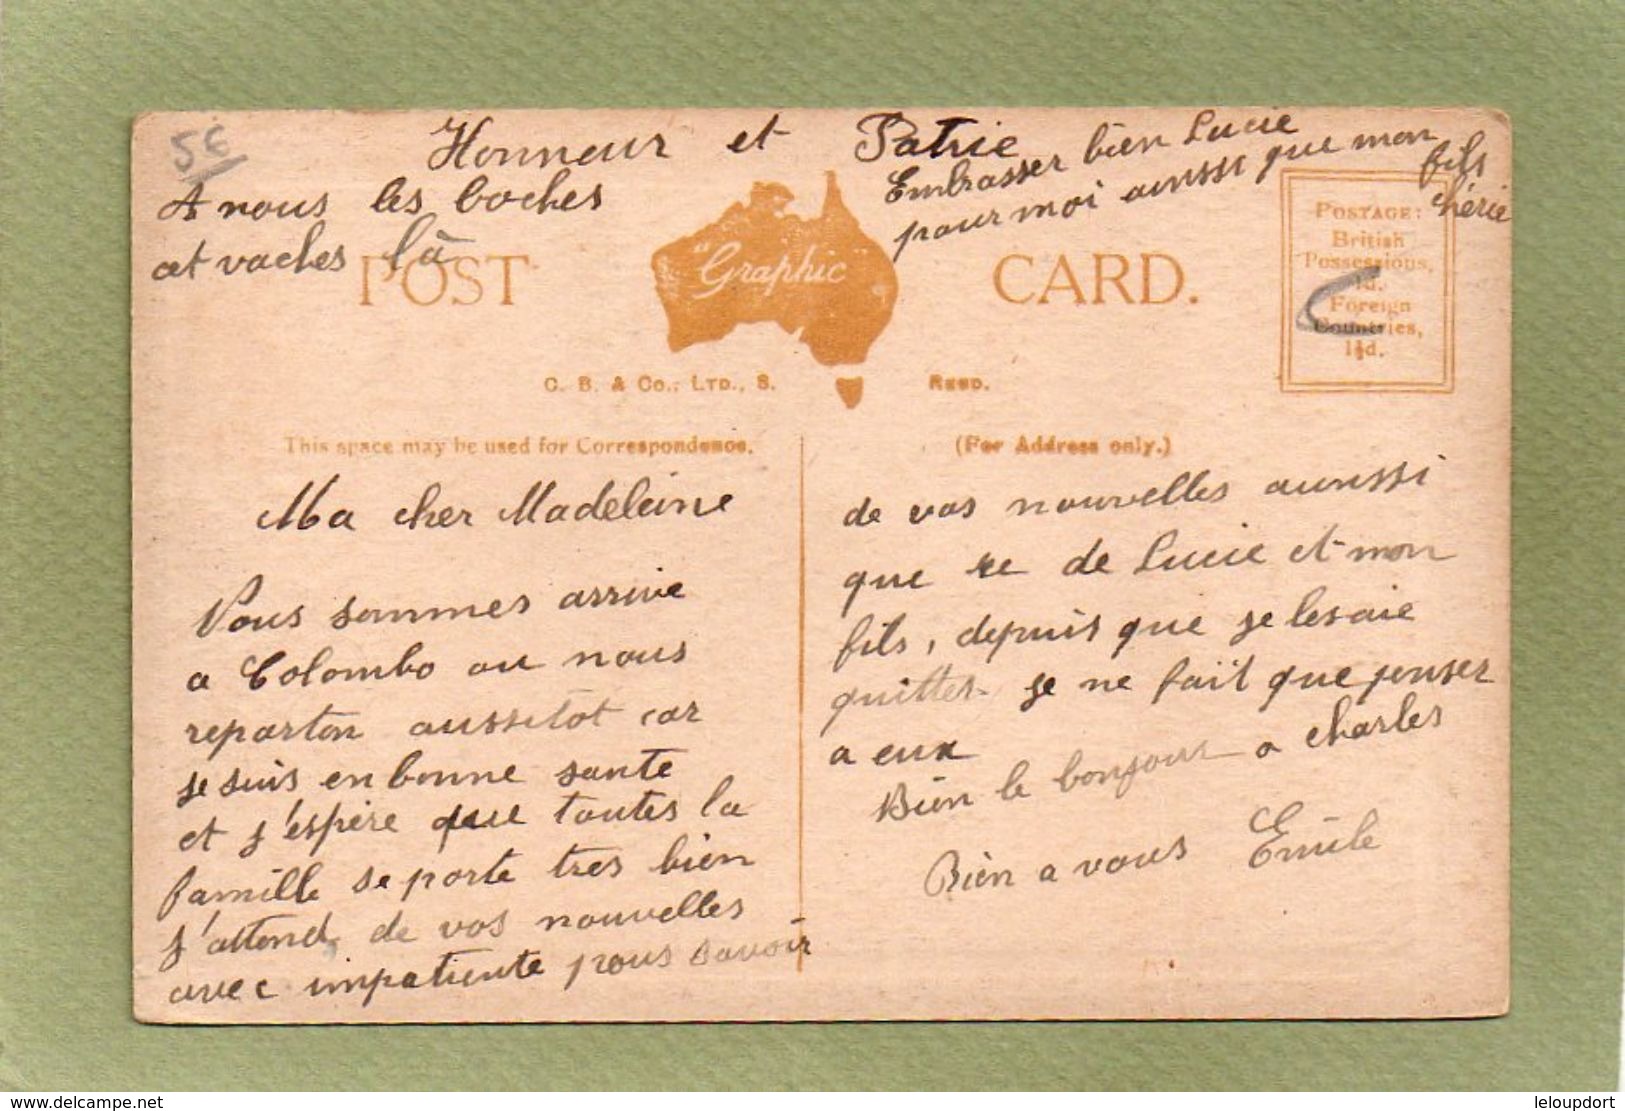 5€
Honneur et Patrie
A nous les boches
et vaches là
Embrasser bien Lucie
pour moi aussi que mon
fils
chérie
POST "Graphic" CARD.
POSTAGE:
British
Possessions,
1d.
Foreign
Countries,
1½d.
C. B. & Co., LTD., S. REGD.
This space may be used for Correspondence.
(For Address only.)
Ma cher Madeleine
Nous sommes arrive
a Colombo ou nous
reparton aussitot car
je suis en bonne sante
et j'espère que toutes la
famille se porte tres bien
j'attend de vos nouvelles
avec impatiente pous savoir
de vos nouvelles aussi
que de Lucie et mon
fils, depuis que je lesaie
quitter je ne fait que penser
a eux
Bien le bonjour a charles
Bien a vous Emile
www.delcampe.net
leloupdort